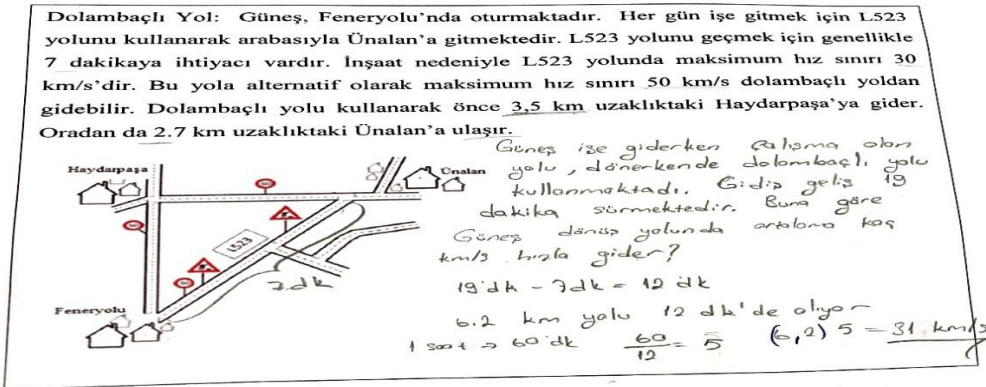 Dolambaçlı Yol: Güneş, Feneryolu'nda oturmaktadır. Her gün işe gitmek için L523
yolunu kullanarak arabasıyla Ünalan'a gitmektedir. L523 yolunu geçmek için genellikle
7 dakikaya ihtiyacı vardır. İnşaat nedeniyle L523 yolunda maksimum hız sınırı 30
km/s'dir. Bu yola alternatif olarak maksimum hız sınırı 50 km/s dolambaçlı yoldan
gidebilir. Dolambaçlı yolu kullanarak önce 3,5 km uzaklıktaki Haydarpaşa'ya gider.
Oradan da 2.7 km uzaklıktaki Ünalan'a ulaşır.
Güneş işe giderken çalışma olan
yolu, dönerkende dolambaçlı yolu
kullanmaktadı. Gidiş geliş 19
dakika sürmektedir. Buna göre
Güneş dönüş yolunda ortalama kaç
km/s hızla gider?
19 dk - 7dk = 12 dk
6.2 km yolu 12 dk'de alıyor
1 saat → 60 dk 60/12 = 5 (6,2) 5 = 31 km/s
Haydarpaşa
Ünalan
L523
7 dk
Feneryolu